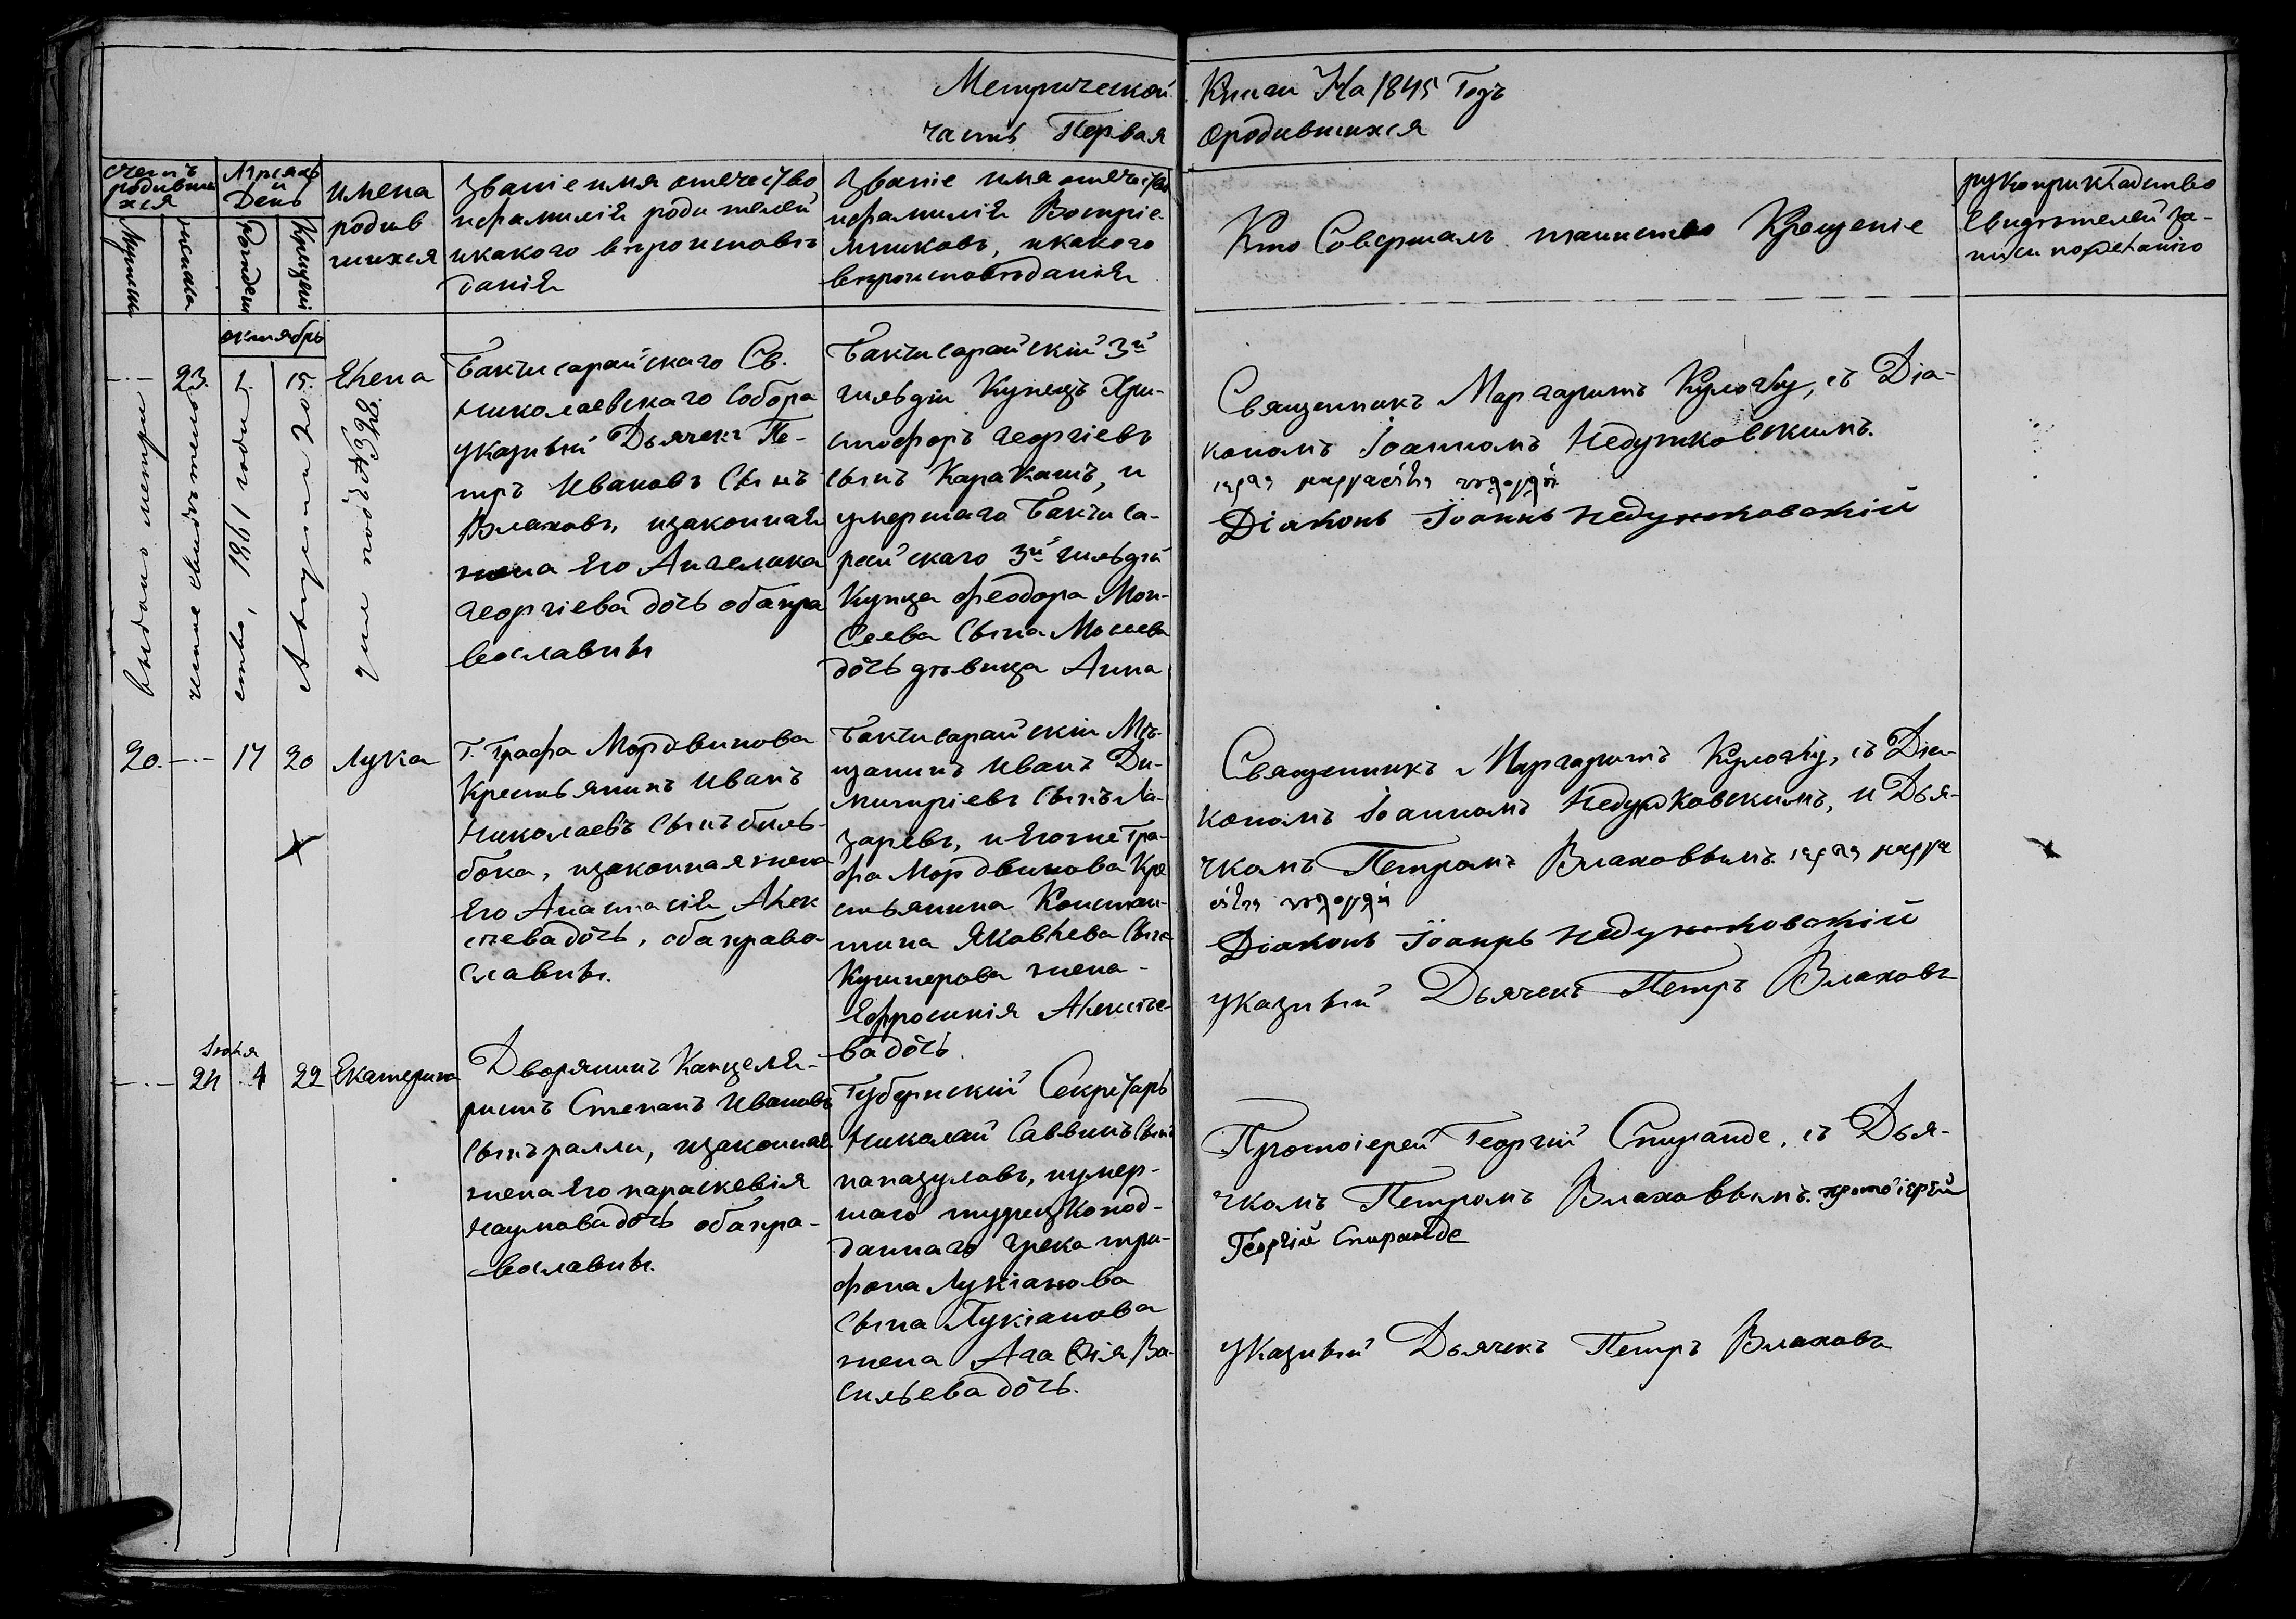 Метрической Книги На 1845 Годъ
часть Первая О родившихся
Счетъ родивших ся
Мѣсяць и День
Имена родив шихся
Званіе имя отечество
и фамилія роди телей
и какого вѣроисповѣ
данія
Званіе имя отечество
и фамилія Воспріе-
мниковъ, и какого
вѣроисповѣданія
Кто Совершалъ таинство Крещеніе
рукоприкладство
свидѣтелей за-
писи по желанію
Мужеска
женска
Рожденія
Крещенія
октябрь
-.-
23.
1.
15.
Елена
выдано метри
ческое свидѣтельс
ство, 1861 года
Августа 20
дня подъ №392.
Бахчисарайскаго Св.
Николаевскаго Собора
указный Дьячекъ Пе-
тръ Ивановъ Сынъ
Влаховъ, и законная
жена Его Ангелика
Георгіева дочь оба пра
вославны
Бахчисарайскій 3й
гильдіи Купецъ Хри-
стофоръ Георгіевъ
сынъ Каракашъ, и
умершаго Бахчиса-
райскаго 3й гильдіи
Купца Феодора Мои-
сеева Сына Мосиева
дочь дѣвица Анна
Священникъ Маргаритъ Кулочлу, съ Діа-
кономъ Іоанномъ Недужковскимъ.
Діаконъ Іоаннъ Недужковскій
20.
-.-
17
20
Лука
Г. Графа Мордвинова
Крестьянинъ Иванъ
Николаевъ Сынъ биль-
бока, и законная жена
Его Анастасія Алек
сѣева дочь, оба право
славны.
Бахчисарайскій Мѣ-
щанинъ Иванъ Ди-
митріевъ Сынъ Ла-
заревъ, и Егоже Гра-
фа Мордвинова Кре
стьянина Констан-
тина Яковлева Сына
Кушнерова жена-
Ефросинія Алексѣе-
ва дочь.
Священникъ Маргаритъ Кулочлу, съ Діа-
кономъ Іоанномъ Недужковскимъ, и Дья-
чкомъ Петромъ Влаховымъ
Діаконъ Іоаннъ Недужковскій
указный Дьячекъ Петръ Влаховъ
-.-
24
Іюля
4
22
Екатерина
Дворянинъ Канцеля-
ристъ Степанъ Ивановъ
Сынъ ралли, и законная
жена Его параскевія
Наумова дочь оба пра-
вославны.
Губернскій Секретарь
Николай Саввинъ Сынъ
папазуловъ, и умер-
шаго турецкопод-
даннаго грека три-
фона Лукіанова
сына Лукіанова
жена Агафія Ва-
сильева дочь.
Протоіерей Георгій Спиранде, съ Дья-
чкомъ Петромъ Влаховымъ. протоіерей
Георгій Спиранде
Указный Дьячекъ Петръ Влаховъ